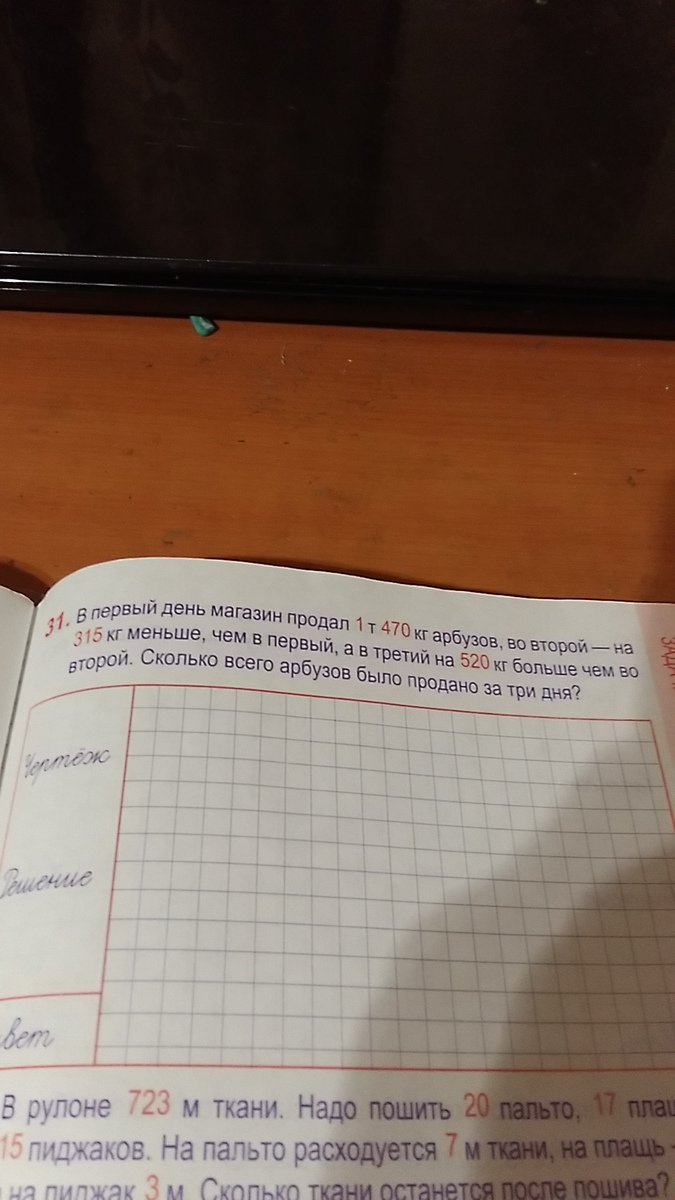 31. В первый день магазин продал 1 т 470 кг арбузов, во второй — на
315 кг меньше, чем в первый, а в третий на 520 кг больше чем во
второй. Сколько всего арбузов было продано за три дня?
Чертёж
Решение
вет
В рулоне 723 м ткани. Надо пошить 20 пальто, 17 плащ
15 пиджаков. На пальто расходуется 7 м ткани, на плащь -
на пиджак 3 м. Сколько ткани останется после пошива?